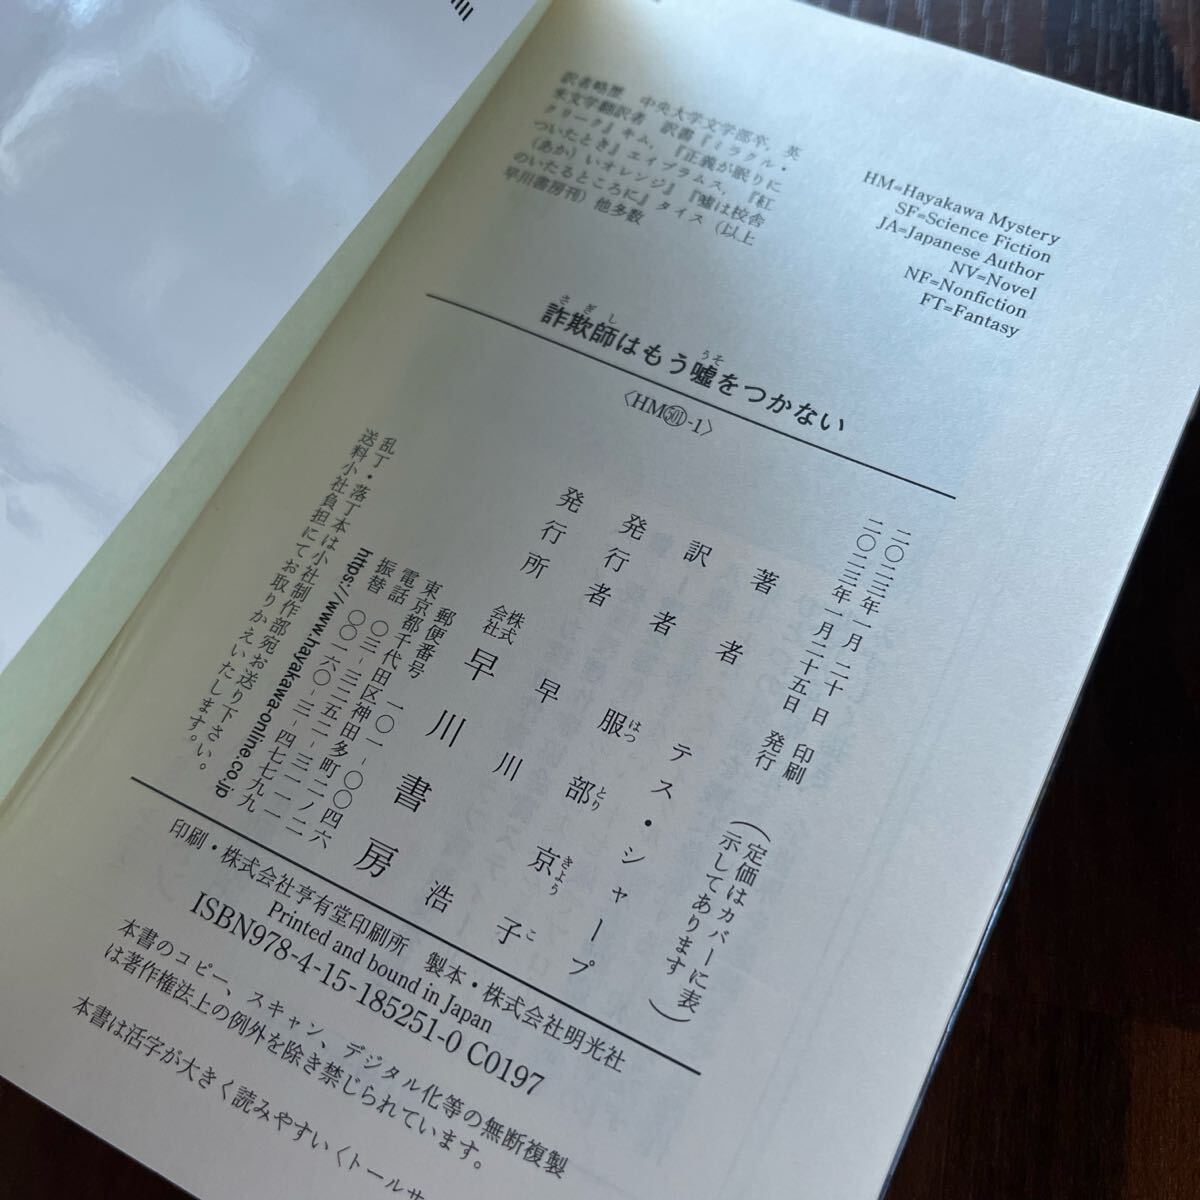 訳者略歴 中央大学文学部卒，英
米文学翻訳者 訳書『ミラクル・
クリーク』キム，『正義が眠りに
ついたとき』エイブラムス，『紅
（あか）いオレンジ』『嘘は校舎
のいたるところに』タイス（以上
早川書房刊）他多数
HM=Hayakawa Mystery
SF=Science Fiction
JA=Japanese Author
NV=Novel
NF=Nonfiction
FT=Fantasy
詐欺師はもう嘘をつかない
さぎし
うそ
〈HM501-1〉
二〇二三年一月二十日 印刷
二〇二三年一月二十五日 発行
（定価はカバーに表示してあります）
著者 テス・シャープ
訳者 服部京子
はつとりきようこ
発行者 早川浩
発行所 株式会社 早川書房
郵便番号 一〇一-〇〇四六
東京都千代田区神田多町二ノ二
電話 〇三-三二五二-三一一一
振替 〇〇一六〇-三-四七七九九
https://www.hayakawa-online.co.jp
乱丁・落丁本は小社制作部宛お送り下さい。
送料小社負担にてお取りかえいたします。
印刷・株式会社亨有堂印刷所 製本・株式会社明光社
Printed and bound in Japan
ISBN978-4-15-185251-0 C0197
本書のコピー、スキャン、デジタル化等の無断複製
は著作権法上の例外を除き禁じられています。
本書は活字が大きく読みやすい〈トールサ